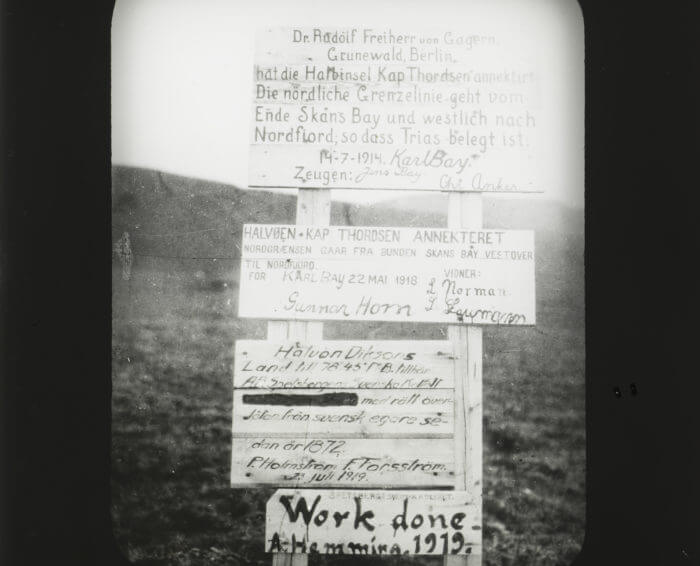 Dr. Radolf Freiherr von Gagern,
Grunewald, Berlin,
hat die Halbinsel Kap Thordsen annektirt
Die nördliche Grenzelinie geht vom
Ende Skans Bay und westlich nach
Nordfiord, so dass Trias belegt ist.
14-7-1914. Karl Bay.
Zeugen: Jens Bay Chr. Anker
HALVØEN KAP THORDSEN ANNEKTERET
NORDGRÆNSEN GAAR FRA BUNDEN SKANS BAY VESTOVER
TIL NORDFJORD.
FOR KARL BAY 22 MAI 1918 VIDNER:
Gunnar Horn L Norman
Halvön Diksons
Land till 78°45' N.B. tillhör
A.B. Spetsbergens Svenska Kolfält
med rätt över-
från svensk egare se-
dan år 1872.
P. Holmström F. Torsström.
23 juli 1919.
Work done
A. Hemming. 1919.